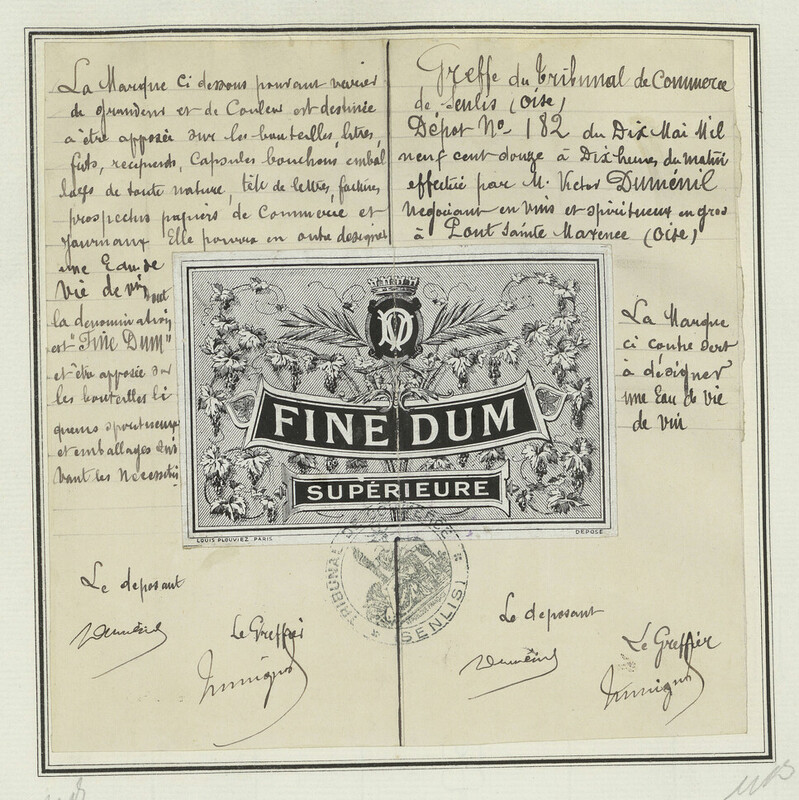 La Marque ci dessous pouvant varier
de grandeur et de Couleur est destinée
a être apposée sur les bouteilles, litres,
futs, recipients, Capsules bouchons, embal
lages de toute nature, tête de lettres, factures
prospectus papiers de Commerce et
journaux Elle pourra en outre designer
une Eau de
vie de vin
la denomination
est "Fine Dum"
et être apposée sur
les bouteilles li
queurs spiritueux
et emballages sui
vant les necessités
Greffe du Tribunal de Commerce
de Senlis (Oise)
Dépot No- 182 du Dix Mai Mil
neuf cent douze à Dix heures du matin
effectué par M. Victor Duménil
Negociant en vins et spiritueux en gros
à Pont Sainte Maxence (Oise)
La Marque
ci contre sert
à désigner
une Eau de vie
de vin
FINE DUM
SUPÉRIEURE
LOUIS PLOUVIEZ. PARIS
DÉPOSÉ
TRIBUNAL DE COMMERCE
SENLIS
Le deposant
Duménil
Le Greffier
Le deposant
Duménil
Le Greffier